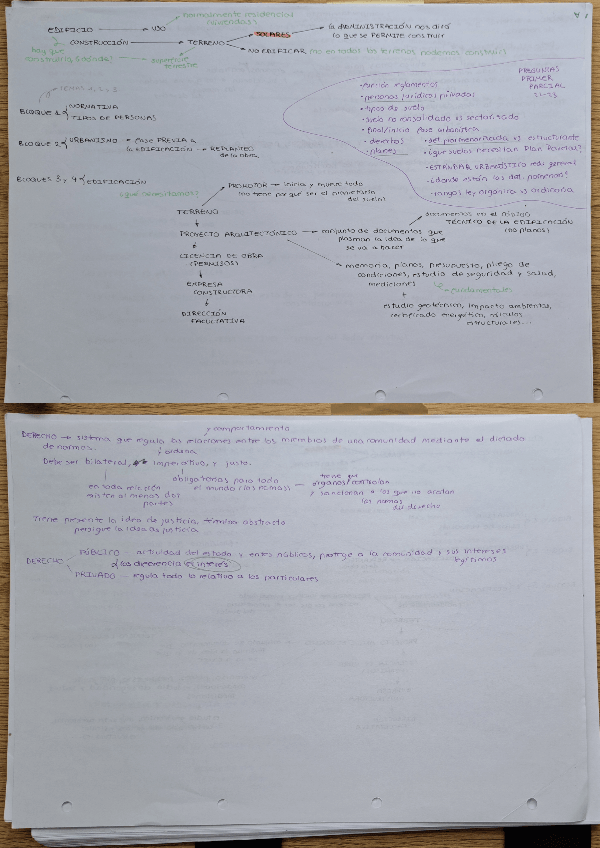 normalmente residencias
(viviendas)
EDIFICIO → USO
CONSTRUCCIÓN → TERRENO
SOLARES → la ADMINISTRACIÓN nos dirá
lo que se PERMITE construir
NO EDIFICAR (no en todos los terrenos podemos construir)
hay que
construirlo
soporte
terrestre
TEMAS 1, 2 y 3
BLOQUE 1 { NORMATIVA
TIPOS DE PERSONAS
BLOQUE 2 { URBANISMO → FASE PREVIA a
la EDIFICACIÓN → REPLANTEO
de la obra
BLOQUES 3 y 4 { EDIFICACIÓN
PREGUNTAS
PRIMER
PARCIAL
22-23
· función reglamentos
· personas jurídicas privadas
· tipos de suelo
· suelo no consolidado vs sectorizado
· final/inicio fase urbanística
· derechos
· planes
· det. pormenorizada vs estructurante
· ¿que suelos necesitan Plan Parcial?
· ESTÁNDAR URBANÍSTICO reds. general
· ¿donde están las det. pormenor.?
· rangos ley orgánica vs ordinaria
¿que necesitamos?
PROMOTOR → inicia y mueve todo
(no tiene por qué ser el propietario
del suelo)
TERRENO
PROYECTO ARQUITECTÓNICO → conjunto de documentos que
plasman la idea de lo que
se va a hacer
TÉCNICO DE LA EDIFICACIÓN
(no planos)
LICENCIA DE OBRA
(PERMISOS)
memoria, planos, presupuesto, pliego de
condiciones, estudio de seguridad y salud,
mediciones
→ fundamentales
EMPRESA
CONSTRUCTORA
+
estudio geotécnico, impacto ambiental,
certificado energético, cálculos
estructurales...
DIRECCIÓN
FACULTATIVA
y comportamiento
DERECHO → sistema que regula las relaciones entre los miembros de una comunidad mediante el dictado
de normas.
ordena
Debe ser bilateral, imperativo, y justo.
en toda relación
existen al menos dos
partes
obligatorias para todo
el mundo (las normas)
tiene que
órganos controlan
y sancionan a los que no acatan
las normas
del derecho
Tiene presente la idea de justicia, término abstracto
persigue la idea de justicia
DERECHO
PÚBLICO → actividad del estado y entes públicos, protege a la comunidad y sus intereses
legítimos
(los diferencia el interés)
PRIVADO → regula todo lo relativo a los particulares